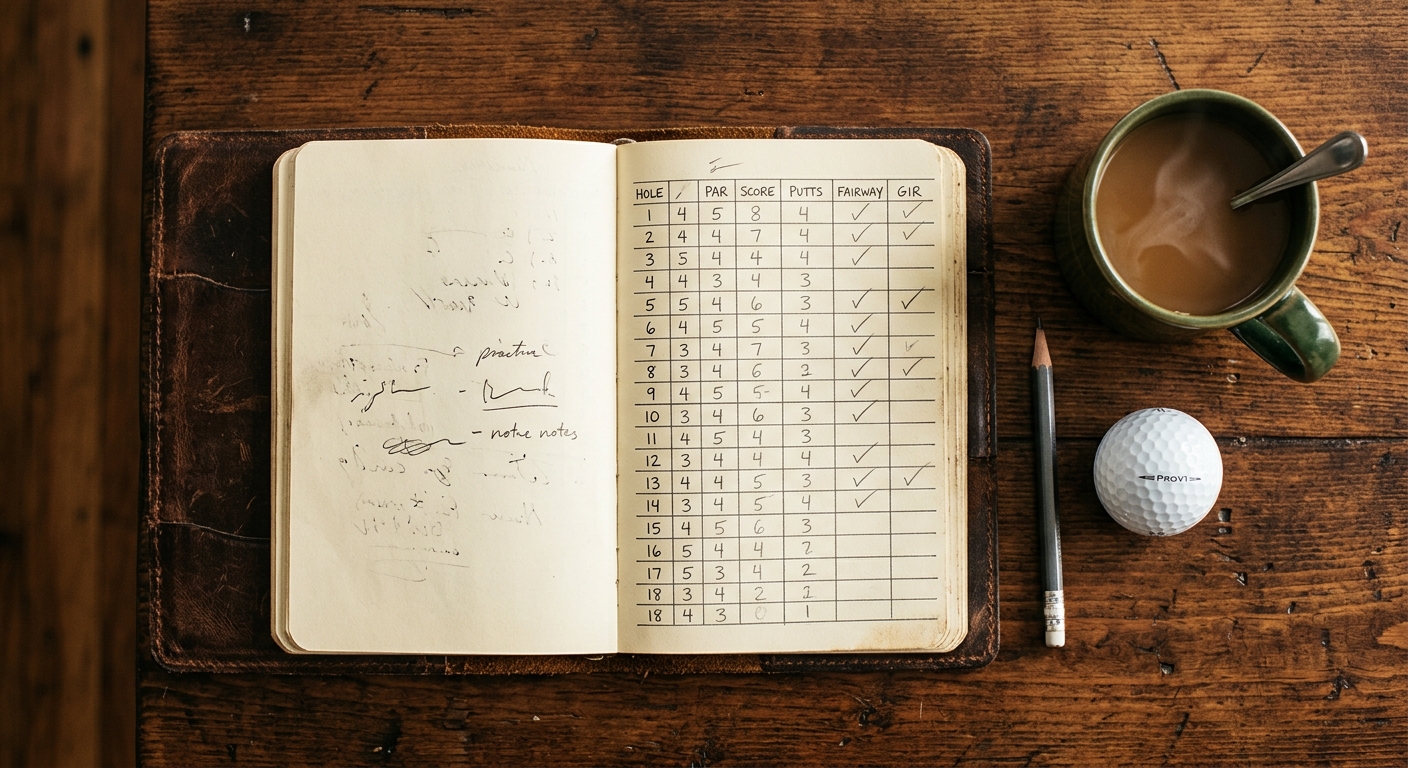 practice
- notre notes
HOLE PAR SCORE PUTTS FAIRWAY GIR
1 4 5 8 4 ✓ ✓
2 4 4 7 4 ✓ ✓
3 5 4 4 4 ✓
4 4 3 4 3
5 5 4 6 3 ✓ ✓
6 4 5 5 4 ✓
7 3 4 7 3 ✓ ✓
8 3 4 6 2 ✓ ✓
9 4 5 5 4 ✓
10 3 4 6 3 ✓
11 4 5 4 3
12 3 4 4 4 ✓
13 4 4 5 3 ✓ ✓
14 3 4 5 4 ✓
15 4 5 6 3
16 5 4 4 2
17 5 3 4 2
18 3 4 2 2
18 4 3 0 1
PROV1